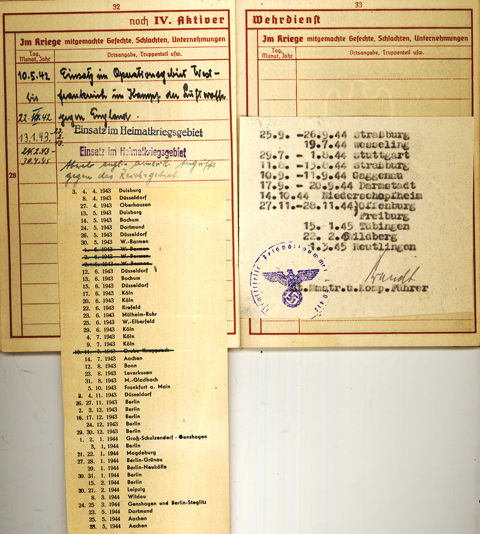 32
noch IV. Aktiver
Im Kriege mitgemachte Gefechte, Schlachten, Unternehmungen
Tag, Monat, Jahr
Ortsangabe, Truppenteil usw.
10.5.42 Einsatz im Operationsgebiet West-
bis frankreich im Kampf der Luftwaffe
22. 42 gegen England.
13.1.43 Einsatz im Heimatkriegsgebiet
Einsatz im Heimatkriegsgebiet
30.4.45
gegen das Reichsgebiet
28
3. 4. 4. 1943 Duisburg
8. 4. 1943 Düsseldorf
27. 4. 1943 Oberhausen
13. 5. 1943 Duisburg
14. 5. 1943 Bochum
24. 5. 1943 Dortmund
26. 5. 1943 Düsseldorf
30. 5. 1943 W.-Barmen
W.-Barmen
W.-Barmen
12. 6. 1943 Düsseldorf
13. 6. 1943 Bochum
15. 6. 1943 Düsseldorf
17. 6. 1943 Köln
20. 6. 1943 Köln
22. 6. 1943 Krefeld
23. 6. 1943 Mülheim-Ruhr
25. 6. 1943 W.-Elberfeld
29. 6. 1943 Köln
4. 7. 1943 Köln
9. 7. 1943 Köln
14. 7. 1943 Aachen
12. 8. 1943 Bonn
23. 8. 1943 Leverkusen
31. 8. 1943 M.-Gladbach
5. 10. 1943 Frankfurt a. Main
4. 11. 1943 Düsseldorf
26. 27. 11. 1943 Berlin
2. 3. 12. 1943 Berlin
16. 17. 12. 1943 Berlin
24. 12. 1943 Berlin
29. 30. 12. 1943 Berlin
1. 2. 1. 1944 Groß-Schulzendorf - Genshagen
5. 1. 1944 Berlin
21. 22. 1. 1944 Magdeburg
27. 28. 1. 1944 Berlin-Grünau
29. 1. 1944 Berlin-Neukölln
30. 31. 1. 1944 Berlin
15. 2. 1944 Berlin
30. 21. 2. 1944 Leipzig
8. 3. 1944 Wildau
24. 25 3. 1944 Genshagen und Berlin-Steglitz
23. 5. 1944 Dortmund
25. 5. 1944 Aachen
28. 5. 1944 Aachen
33
Wehrdienst
Im Kriege mitgemachte Gefechte, Schlachten, Unternehmungen
Tag, Monat, Jahr
Ortsangabe, Truppenteil usw.
25.9. -26.9.44 Straßburg
19.7.44 Wesseling
29.7. - 1.8.44 Stuttgart
11.8. - 15.8.44 Straßburg
10.9. -11.9.44 Gaggenau
17.9. - 20.9.44 Darmstadt
14.10.44 Niederschopfheim
27.11.-28.11.44 Offenburg
Freiburg
15. 1.45 Tübingen
22. 2.45 Wildberg
1.3.45 Reutlingen
u.Komp.Führer